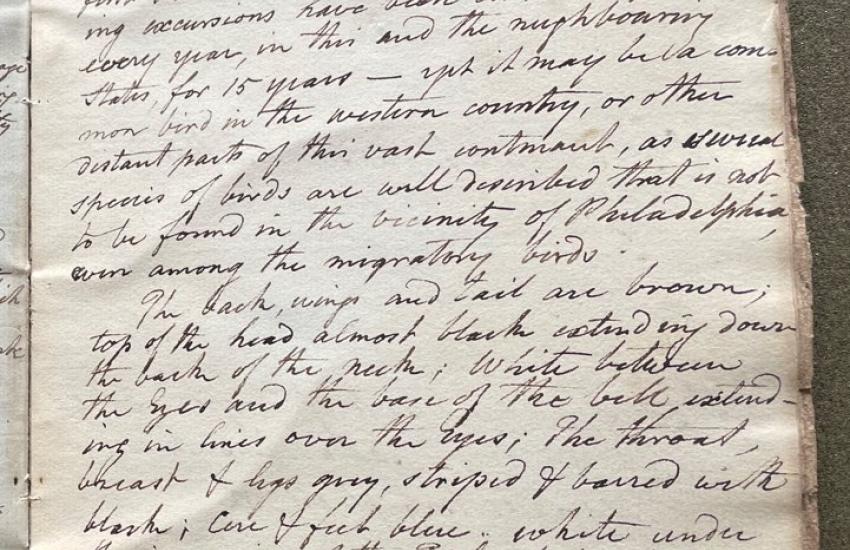 ing excursions have been
every year, in this and the neighbouring
States, for 15 years — yet it may be a com-
mon bird in the western country, or other
distant parts of this vast continent, as several
species of birds are well described that is not
to be found in the vicinity of Philadelphia,
even among the migratory birds.
The back, wings and tail are brown;
top of the head almost black extending down
the back of the neck; White between
the Eyes and the base of the bill extend-
ing in lines over the Eyes; The throat,
breast & legs grey, striped & barred with
black; Cere & feet blue. white under